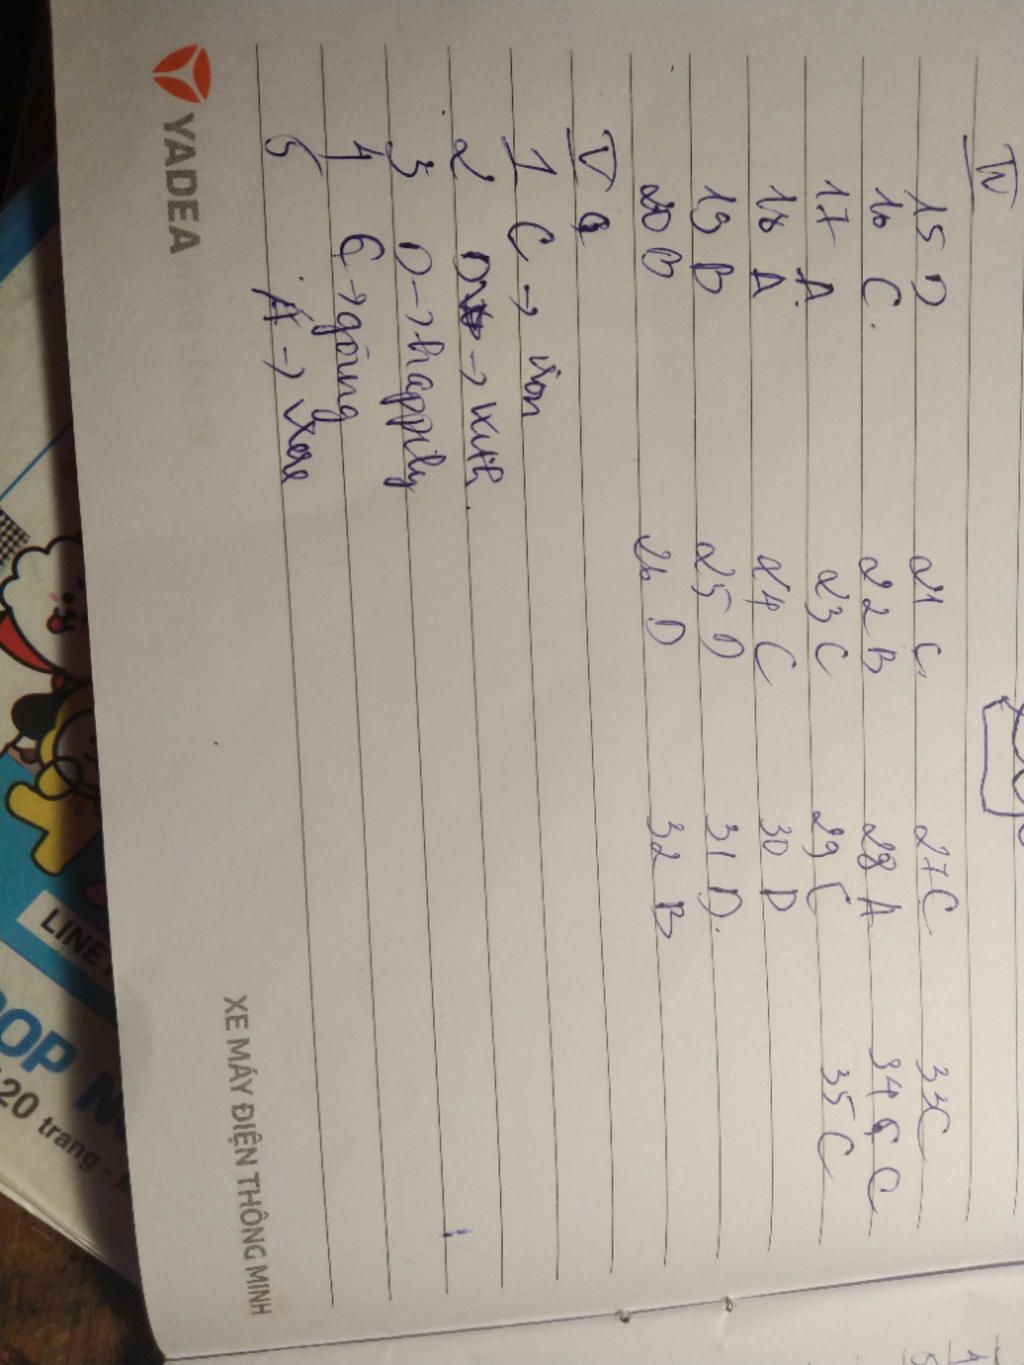 IV
15 D 21 C 27 C 33 C
16 C. 22 B 28 A 34 C
17 A. 23 C 29 C 35 C
18 A 24 C 30 D
19 B 25 D 31 D.
20 B 26 D 32 B
V
1 C → won
2 D → with
3 D → happily
4 C → going
5 A →
YADEA
XE MÁY ĐIỆN THÔNG MINH
LINE
OP N
20 trang